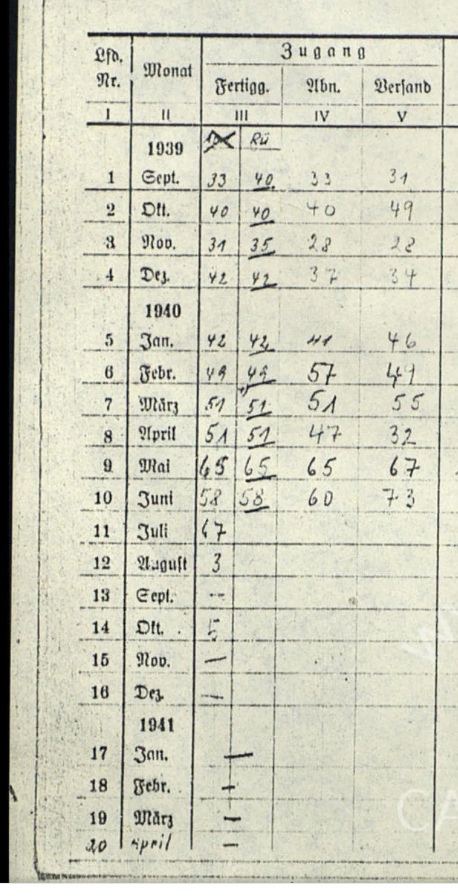 Lfd. Nr. Monat Zugang
Fertigg. Abn. Versand
I II III IV V
1939 Rü
1 Sept. 33 40 33 31
2 Okt. 40 40 40 49
3 Nov. 31 35 28 28
4 Dez. 42 42 37 34
1940
5 Jan. 42 42 41 46
6 Febr. 49 49 57 41
7 März 51 51 51 55
8 April 51 51 47 32
9 Mai 65 65 65 67
10 Juni 58 58 60 73
11 Juli 67
12 August 3
13 Sept. --
14 Okt. 5
15 Nov. —
16 Dez. —
1941
17 Jan. —
18 Febr. —
19 März —
20 April —